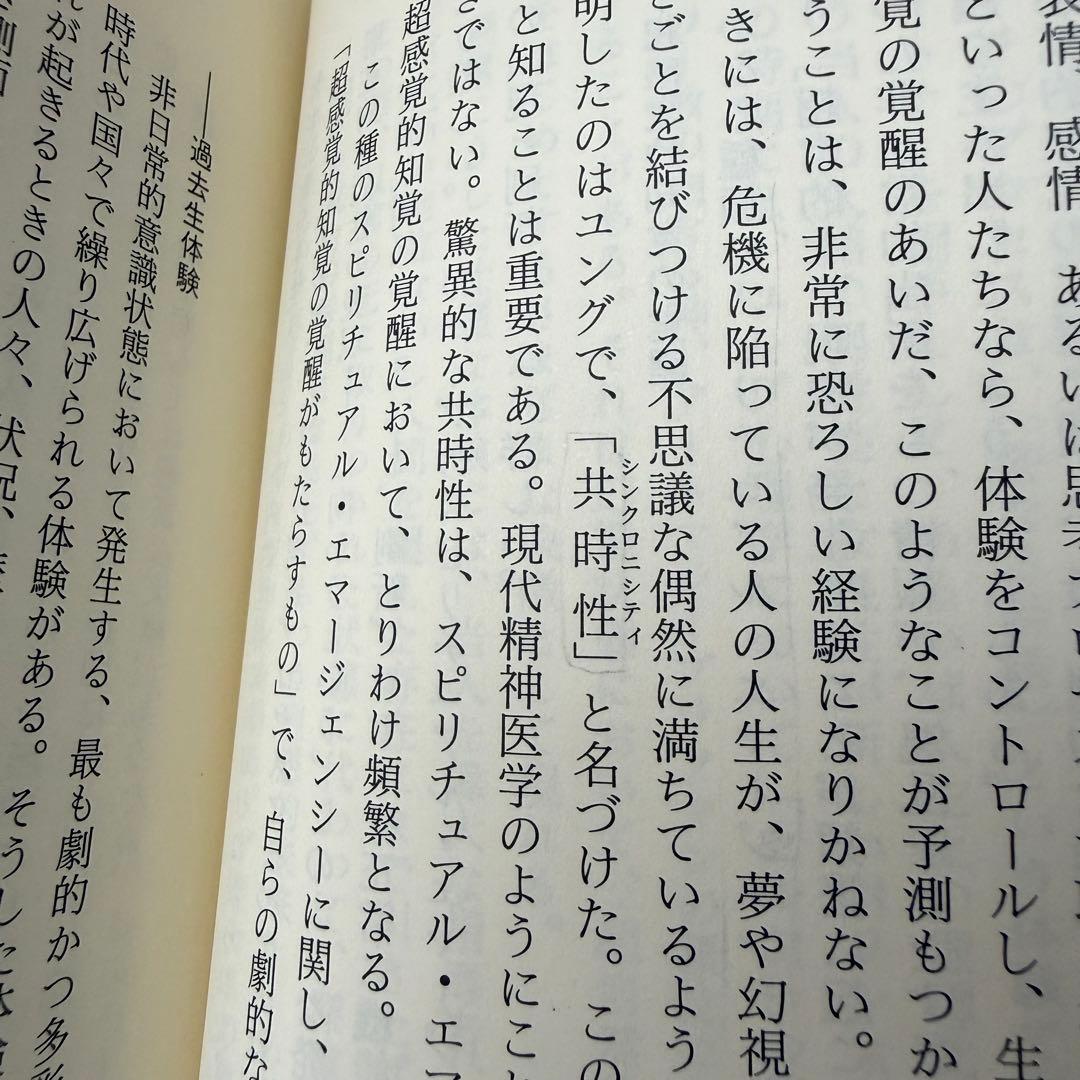 表情、感情、あるいは思考プロセス
といった人たちなら、体験をコントロールし、生
覚の覚醒のあいだ、このようなことが予測もつか
うことは、非常に恐ろしい経験になりかねない。
きには、危機に陥っている人の人生が、夢や幻視
ごとを結びつける不思議な偶然に満ちているよう
明したのはユングで、「共時性」と名づけた。この
シンクロニシティ
と知ることは重要である。現代精神医学のようにこ
ではない。驚異的な共時性は、スピリチュアル・エマ
超感覚的知覚の覚醒において、とりわけ頻繁となる。
この種のスピリチュアル・エマージェンシーに関し、
「超感覚的知覚の覚醒がもたらすもの」で、自らの劇的な
――過去生体験
非日常的意識状態において発生する、最も劇的かつ多彩
時代や国々で繰り広げられる体験がある。そうした体
れが起きるときの人々、状況、